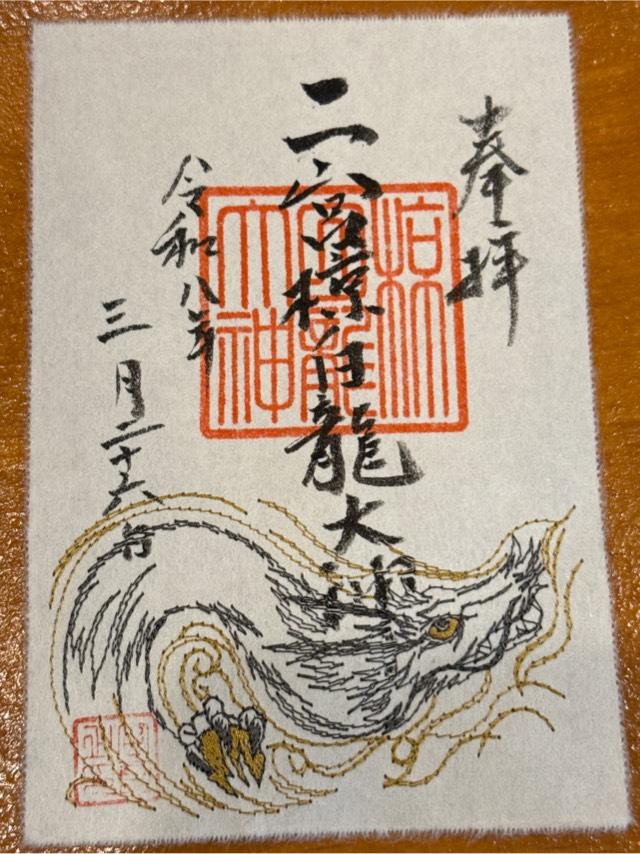 奉拝
二宮椋白龍大神
令和八年
三月二十六日